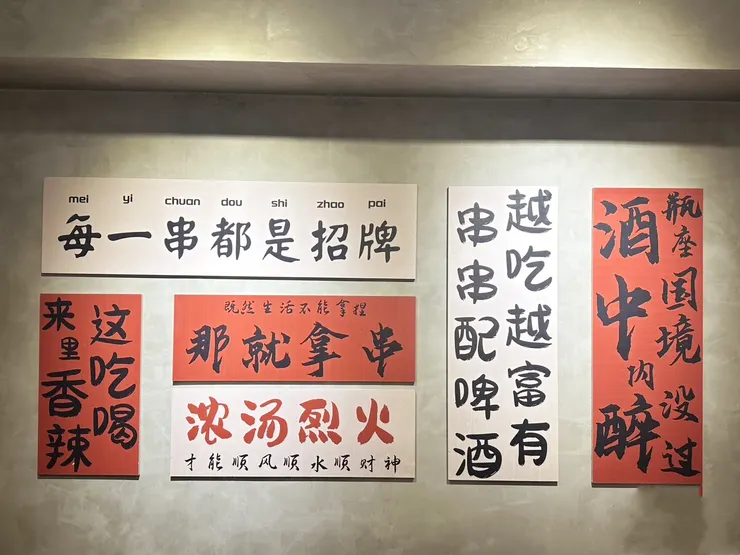 mei yi chuan dou shi zhao pai
每一串都是招牌
来里香辣
这吃喝
既然生活不能拿捏
那就拿串
浓汤烈火
才能顺风顺水顺财神
越吃越富有
串串配啤酒
酒中内醉
瓶座国境没过